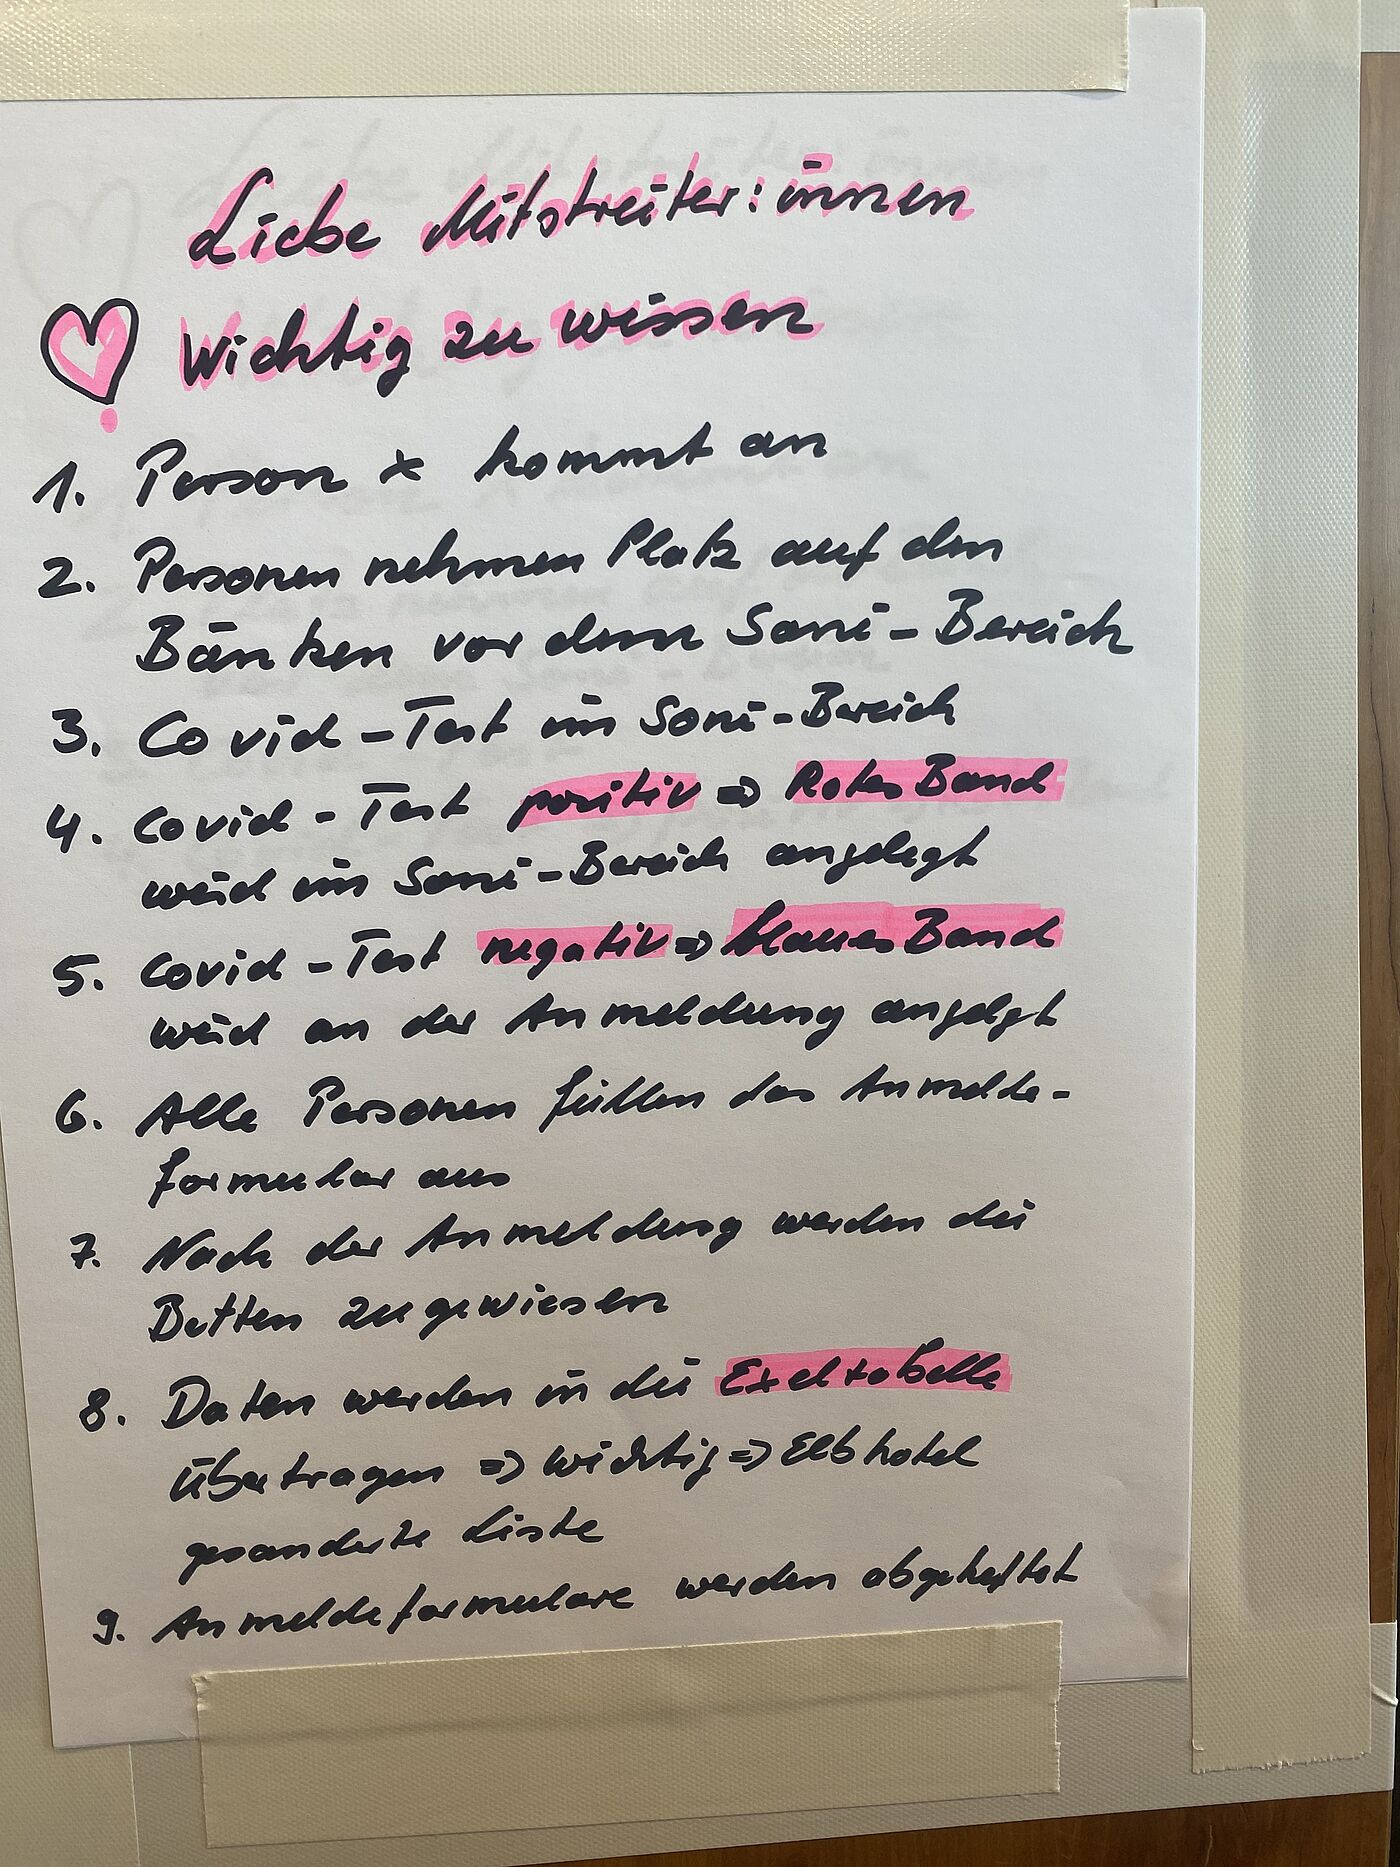 Liebe Mitstreiter:innen
Wichtig zu wissen
1. Person x kommt an
2. Personen nehmen Platz auf den
Bänken vor dem Sani-Bereich
3. Covid-Test im Sani-Bereich
4. Covid-Test positiv => Rotes Band
wird im Sani-Bereich angelegt
5. Covid-Test negativ => blaues Band
wird an der Anmeldung angelegt
6. Alle Personen füllen das Anmelde-
formular aus
7. Nach der Anmeldung werden die
Betten zugewiesen
8. Daten werden in die Exceltabelle
übertragen => wichtig => Elbhotel
gesonderte Liste
9. Anmeldeformulare werden abgeheftet